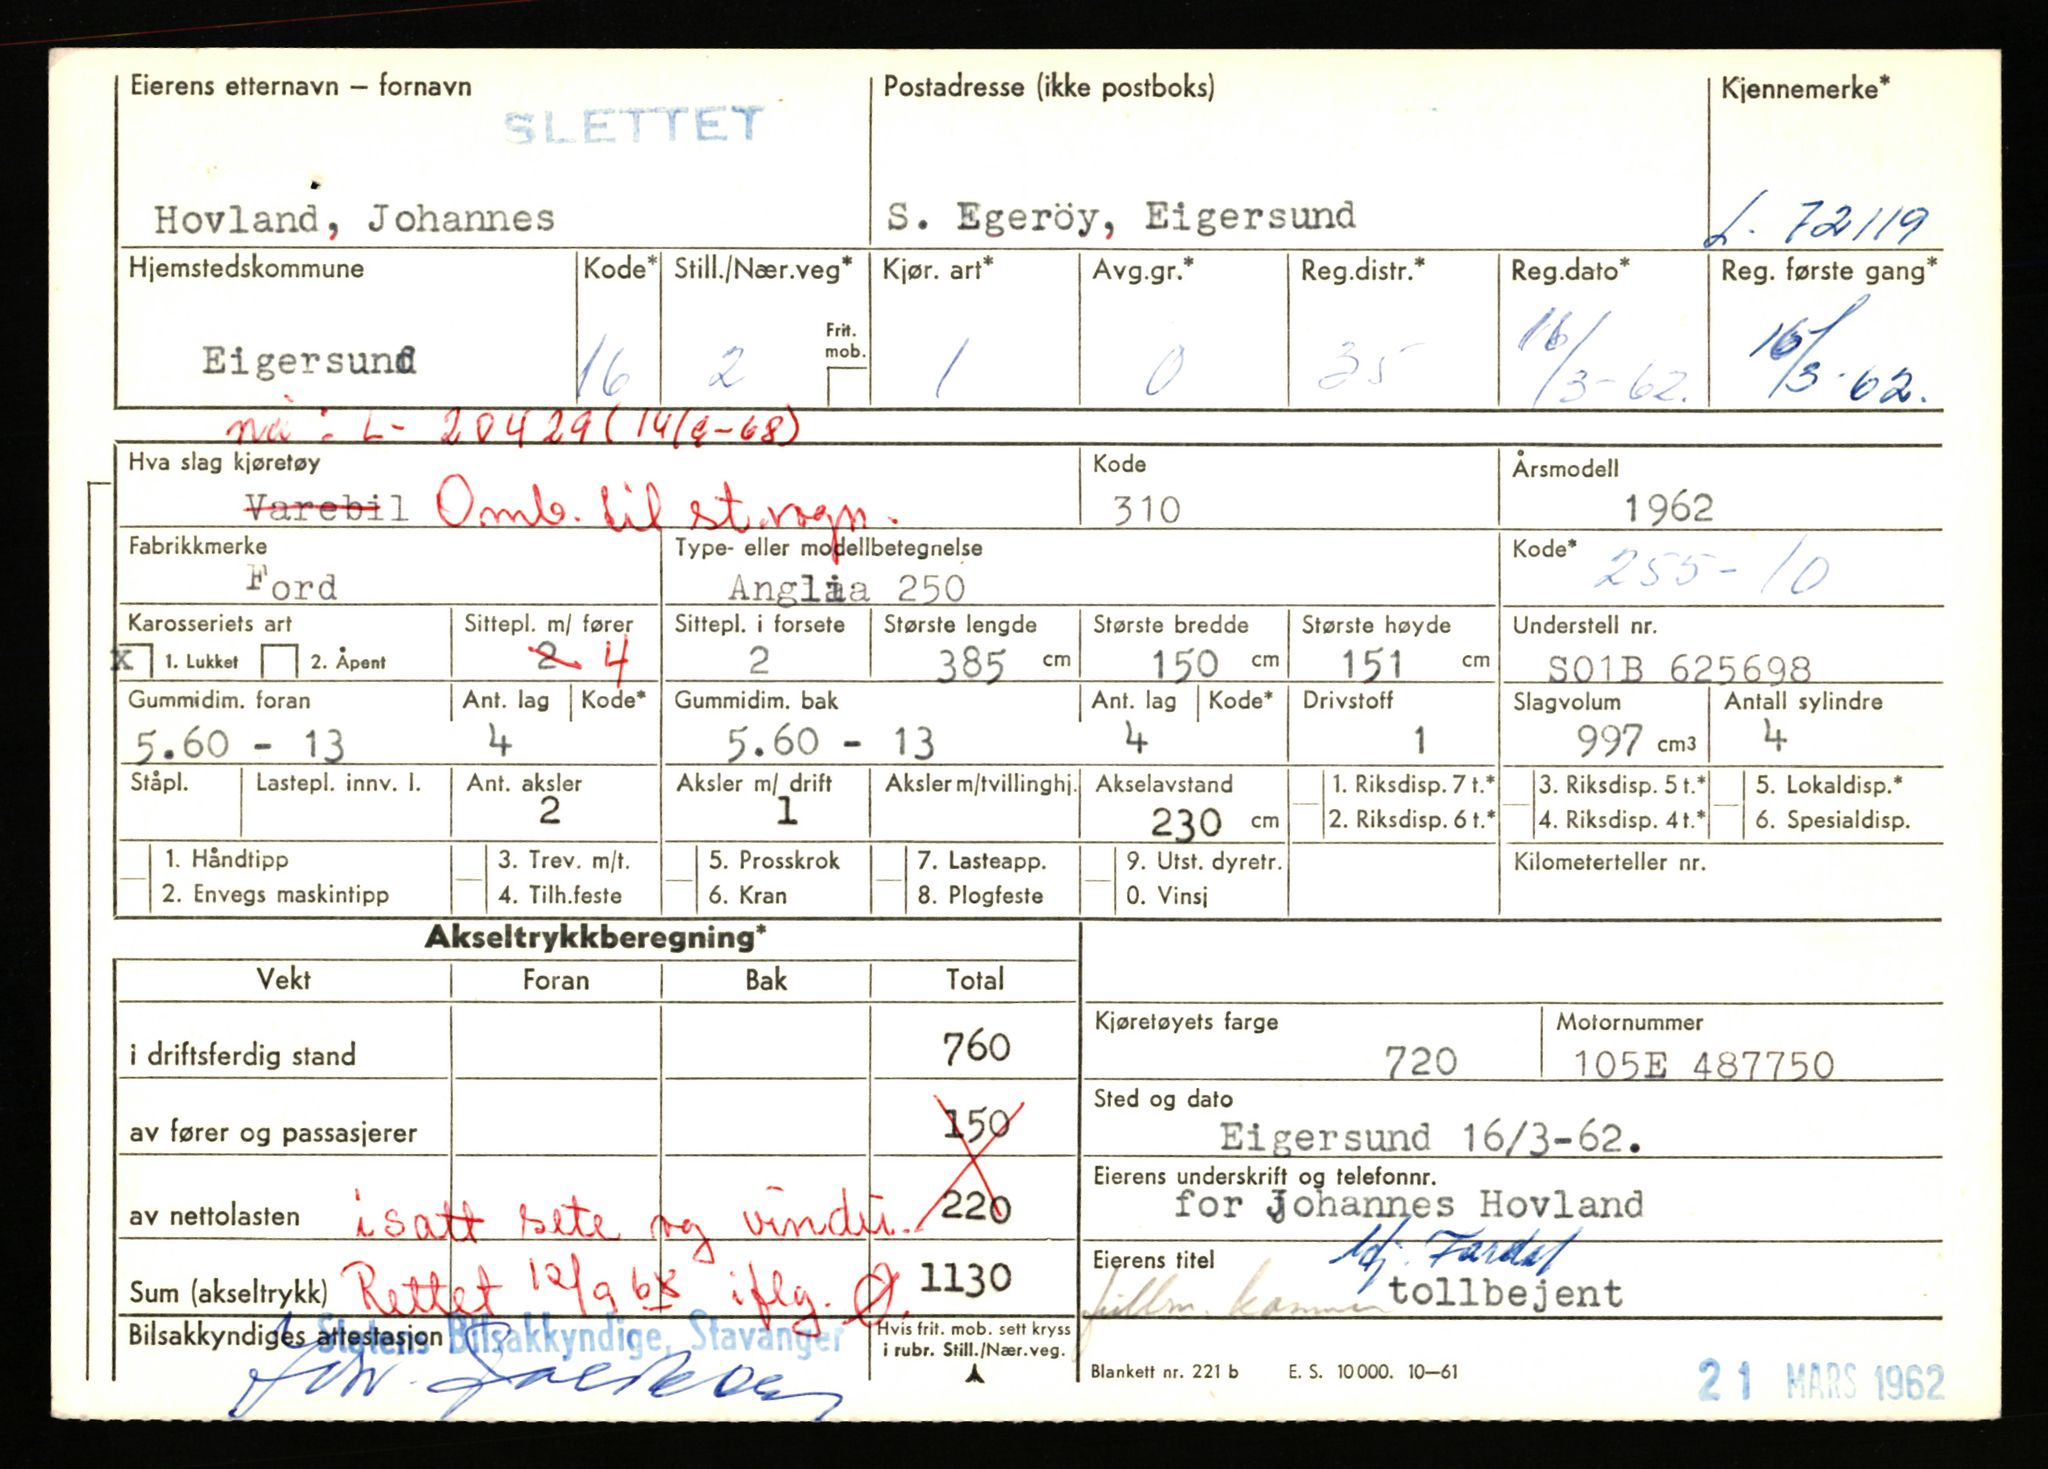 Eierens etternavn – fornavn Postadresse (ikke postboks) Kjennemerke*
SLETTET
Hovland, Johannes S. Egeröy, Eigersund L. 72119
Hjemstedskommune Kode* Still./Nær.veg* Kjør. art* Avg.gr.* Reg.distr.* Reg.dato* Reg. første gang*
Frit. mob.
Eigersund 16 2 1 0 35 16/3-62. 16/3-62.
nå: L- 20429 (14/9-68)
Hva slag kjøretøy Kode Årsmodell
Varebil Omb. til st.vogn. 310 1962
Fabrikkmerke Type- eller modellbetegnelse Kode*
Ford Anglia 250 255-10
Karosseriets art Sittepl. m/ fører Sittepl. i forsete Største lengde Største bredde Største høyde Understell nr.
X 1. Lukket 2. Åpent 2 4 2 385 cm 150 cm 151 cm S01B 625698
Gummidim. foran Ant. lag Kode* Gummidim. bak Ant. lag Kode* Drivstoff Slagvolum Antall sylindre
5.60 - 13 4 5.60 - 13 4 1 997 cm3 4
Ståpl. Lastepl. innv. l. Ant. aksler Aksler m/ drift Aksler m/tvillinghj. Akselavstand 1. Riksdisp. 7 t.* 3. Riksdisp. 5 t.* 5. Lokaldisp.*
2 1 230 cm 2. Riksdisp. 6 t.* 4. Riksdisp. 4 t.* 6. Spesialdisp.
1. Håndtipp 3. Trev. m/t. 5. Prosskrok 7. Lasteapp. 9. Utst. dyretr. Kilometerteller nr.
2. Envegs maskintipp 4. Tilh.feste 6. Kran 8. Plogfeste 0. Vinsj
Akseltrykkberegning*
Vekt Foran Bak Total
i driftsferdig stand 760
Kjøretøyets farge Motornummer
720 105E 487750
av fører og passasjerer 150
Sted og dato
Eigersund 16/3-62.
av nettolasten isatt sete og vindu. 220
Eierens underskrift og telefonnr.
for Johannes Hovland
Sum (akseltrykk) Rettet 12/9 68 iflg. 1130
Eierens titel
tollbejent
Bilsakkyndiges attestasjon Statens Bilsakkyndige, Stavanger
Hvis frit. mob. sett kryss
i rubr. Still./Nær.veg.
Blankett nr. 221 b E. S. 10 000. 10–61
21 MARS 1962